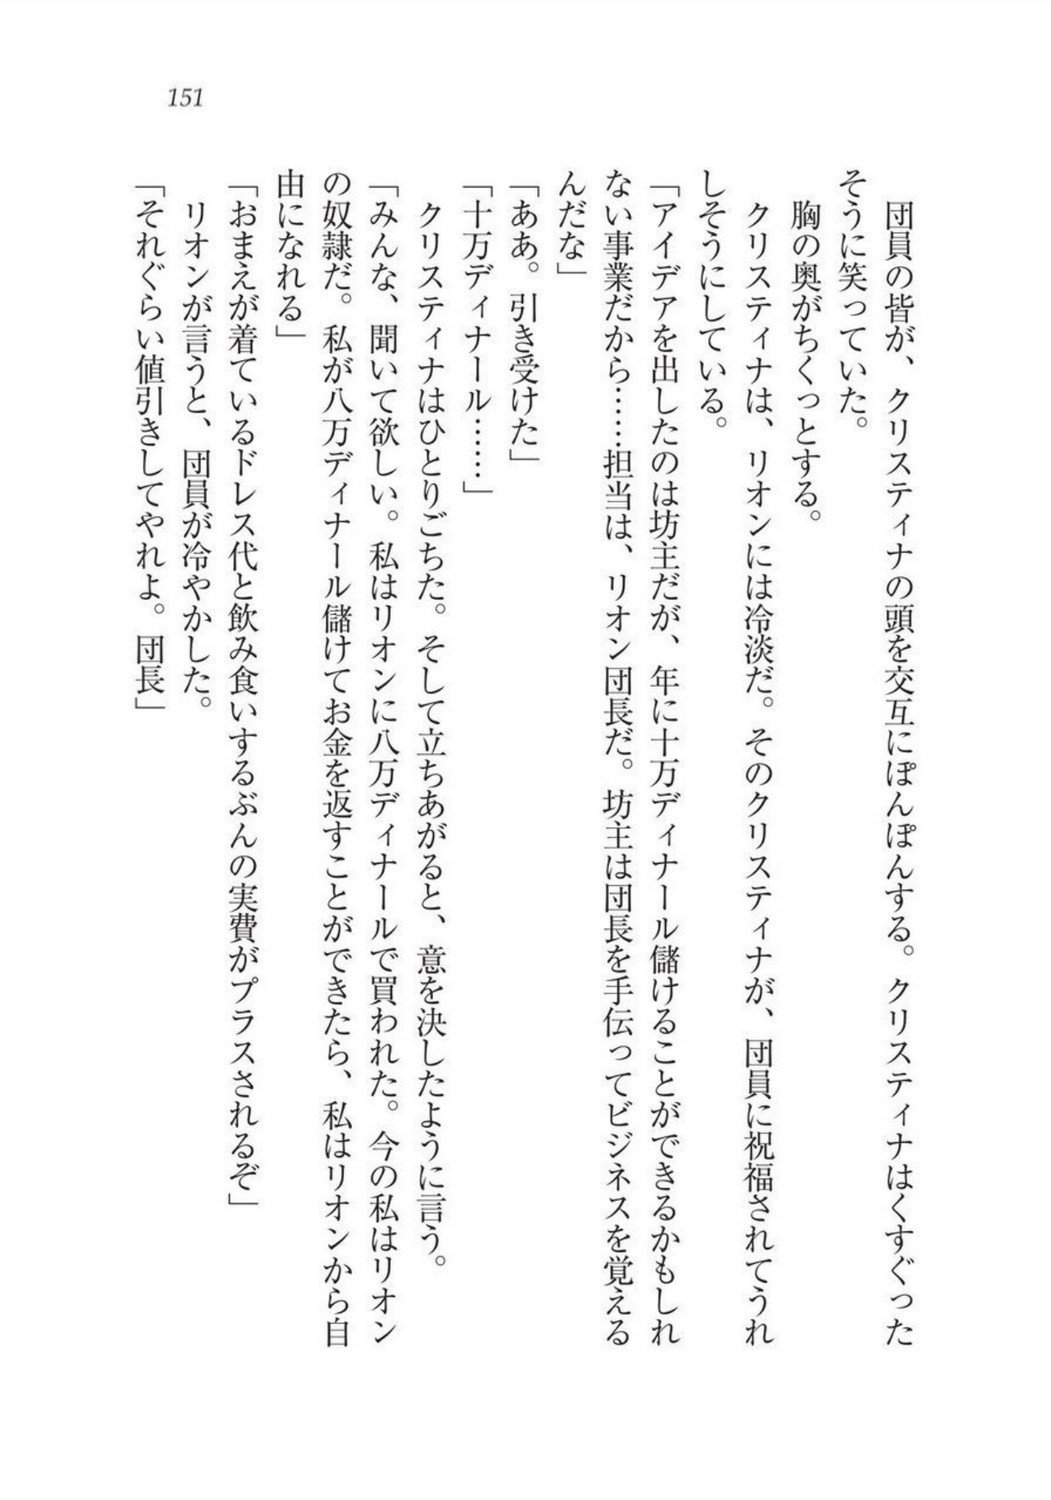 151
団員の皆が、クリスティナの頭を交互にぽんぽんする。クリスティナはくすぐった
そうに笑っていた。
胸の奥がちくっとする。
クリスティナは、リオンには冷淡だ。そのクリスティナが、団員に祝福されてうれ
しそうにしている。
「アイデアを出したのは坊主だが、年に十万ディナール儲けることができるかもしれ
ない事業だから……担当は、リオン団長だ。坊主は団長を手伝ってビジネスを覚える
んだな」
「ああ。引き受けた」
「十万ディナール……」
クリスティナはひとりごちた。そして立ちあがると、意を決したように言う。
「みんな、聞いて欲しい。私はリオンに八万ディナールで買われた。今の私はリオン
の奴隷だ。私が八万ディナール儲けてお金を返すことができたら、私はリオンから自
由になれる」
「おまえが着ているドレス代と飲み食いするぶんの実費がプラスされるぞ」
リオンが言うと、団員が冷やかした。
「それぐらい値引きしてやれよ。団長」